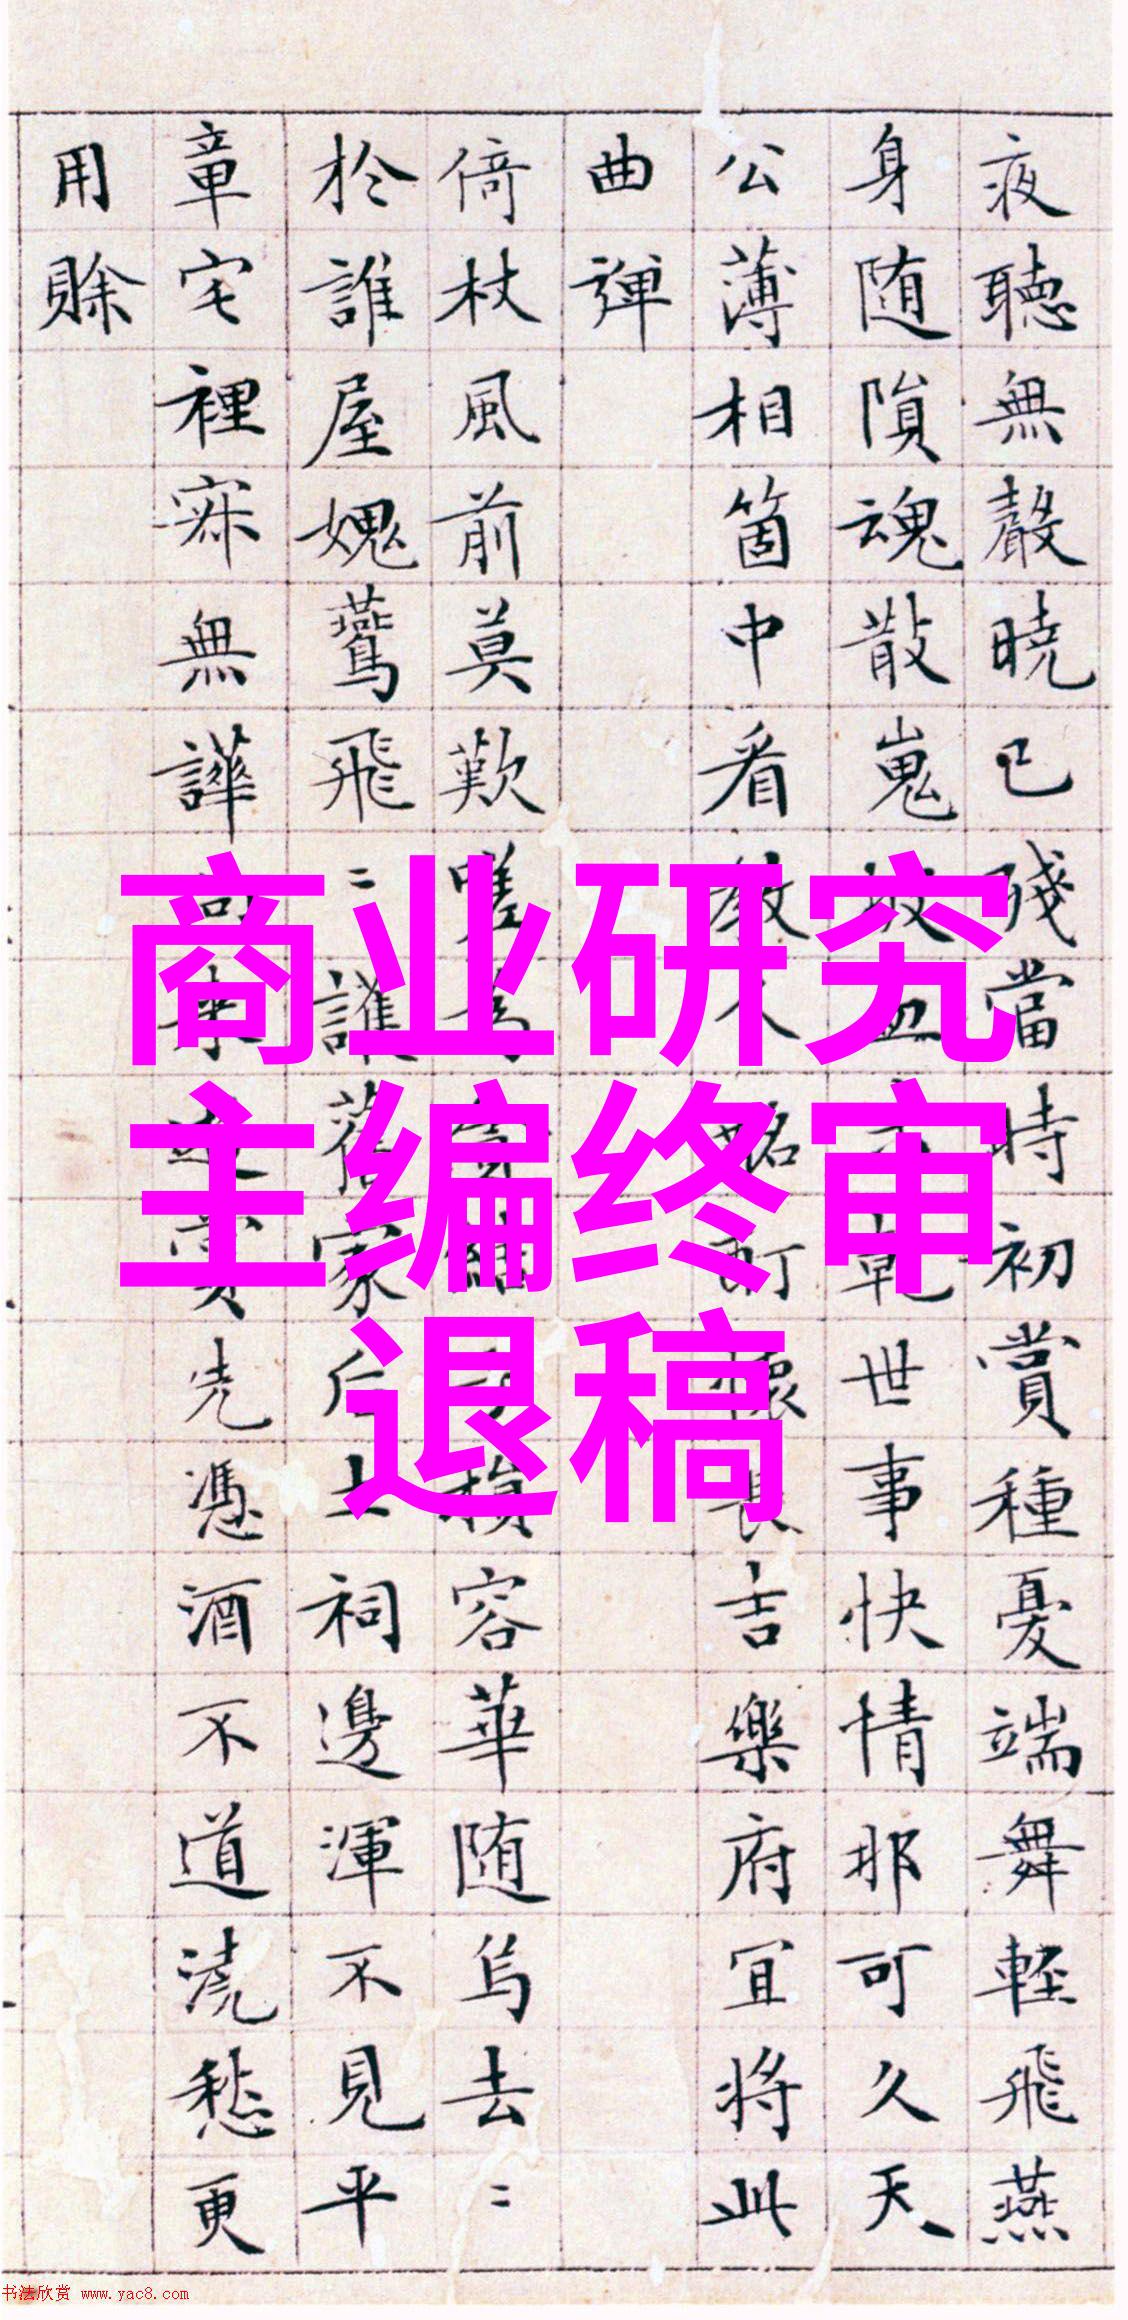 夜聽無聲曉已殘當時初賞種憂端舞輕飛燕
身随隕魂散嵬世事快情那可久天
公薄相箇中看教人懷長吉樂府宜将此
曲彈
倚杖風前莫歎嗟容華随烏去〻
於誰屋媿鷰飛〻護落家丘土祠邊渾不見平
章宅裡寂無譁先憑酒不道澆愁更
用賒
商业研究
主编终审
退稿
书法欣赏 www.yac8.com